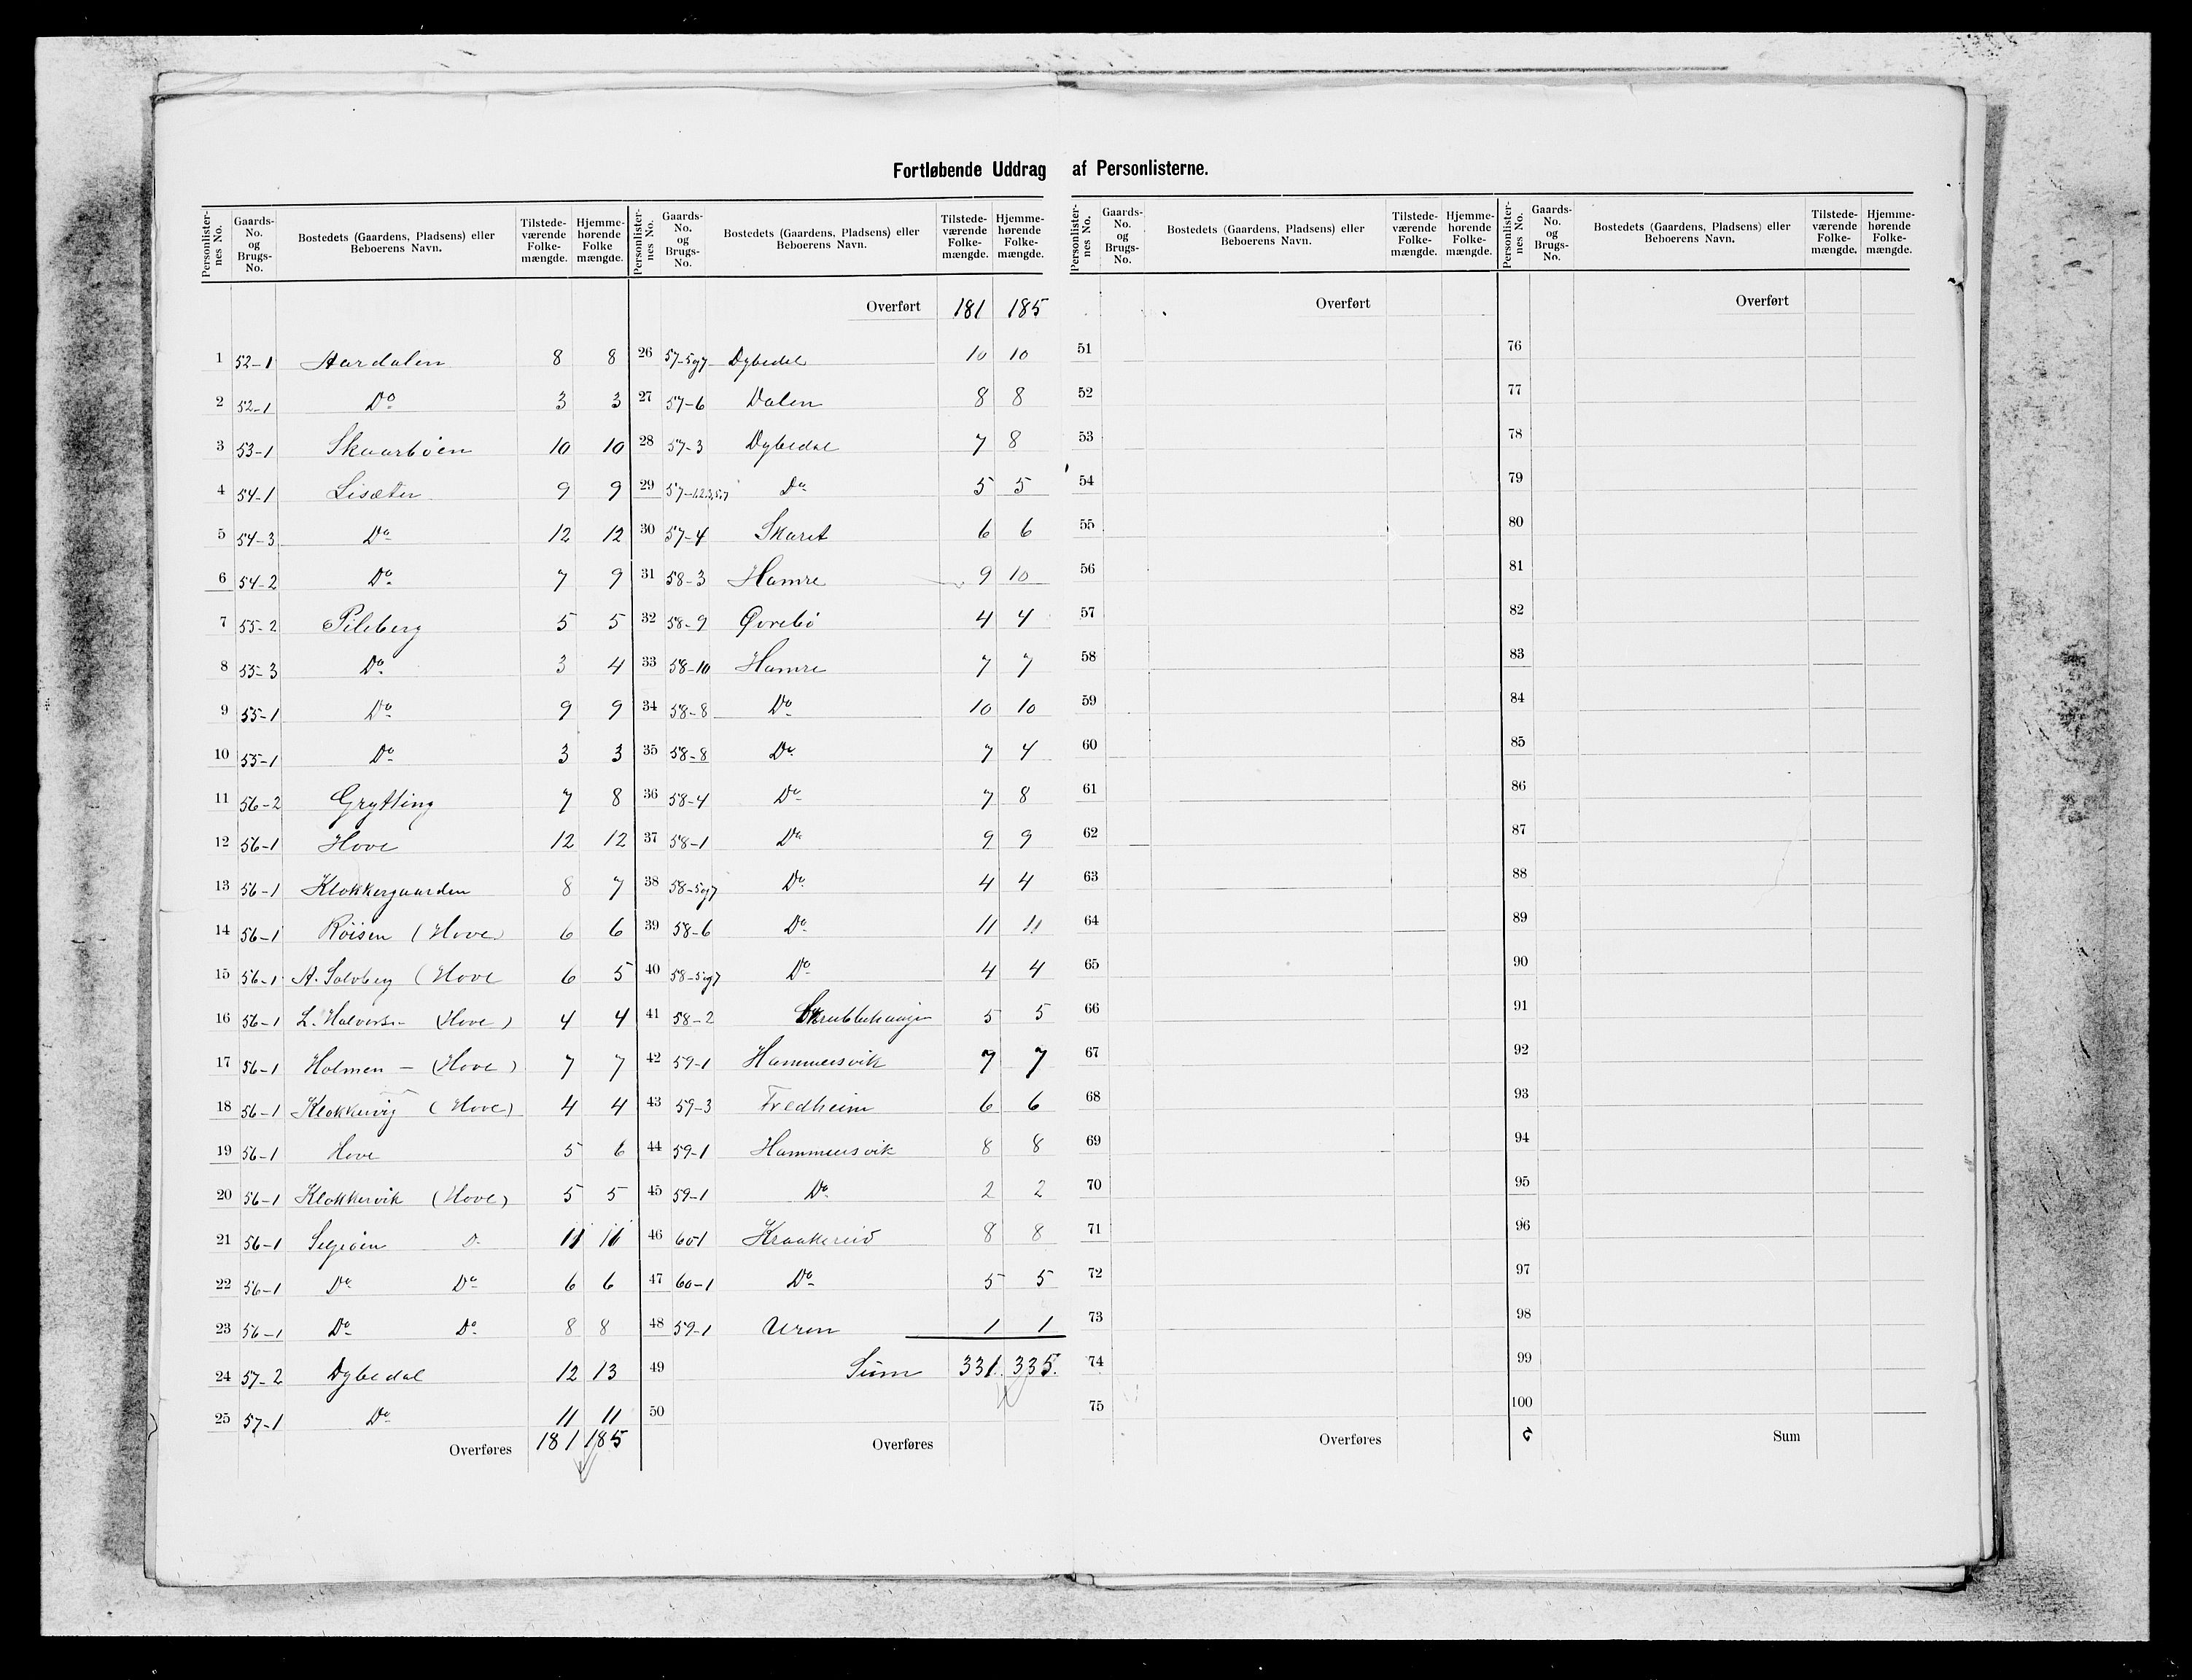 Fortløbende Uddrag af Personlisterne.
Personlister-nes No. Gaards-No. og Brugs-No. Bostedets (Gaardens, Pladsens) eller Beboerens Navn. Tilstede-værende Folke-mængde. Hjemme-hørende Folke mængde.
1 52-1 Aardalen 8 8
2 52-1 Do 3 3
3 53-1 Skaarbøen 10 10
4 54-1 Lisæter 9 9
5 54-3 Do 12 12
6 54-2 Do 7 9
7 55-2 Pileberg 5 5
8 55-3 Do 3 4
9 55-1 Do 9 9
10 55-1 Do 3 3
11 56-2 Grytting 7 8
12 56-1 Hove 12 12
13 56-1 Klokkergaarden 8 7
14 56-1 Röisen (Hove) 6 6
15 56-1 A. Solvberg (Hove 6 5
16 56-1 L. Halvorsn (Hove) 4 4
17 56-1 Holmen - (Hove) 7 7
18 56-1 Klokkervig (Hove) 4 4
19 56-1 Hove 5 6
20 56-1 Klokkervik (Hove) 5 5
21 56-1 D. 11 11
22 56-1 Do Do 6 6
23 56-1 Do Do 8 8
24 57-2 Dybedal 12 13
25 57-1 Do 11 11
Overføres 181 185
Personlister-nes No. Gaards-No. og Brugs-No. Bostedets (Gaardens, Pladsens) eller Beboerens Navn. Tilstede-værende Folke-mængde. Hjemme-hørende Folke-mængde.
Overført 181 185
26 57-5og7 Dybedal 10 10
27 57-6 Dalen 8 8
28 57-3 Dybedal 7 8
29 57- Do 5 5
30 57-4 Skaret 6 6
31 58-3 Hamre 9 10
32 58-9 Øvrebø 4 4
33 58-10 Hamre 7 7
34 58-8 Do 10 10
35 58-8 Do 7 4
36 58-4 Do 7 8
37 58-1 Do 9 9
38 58-5og7 Do 4 4
39 58-6 Do 11 11
40 58-5og7 Do 4 4
41 58-2 5 5
42 59-1 Hammersvik 7 7
43 59-3 Fredheim 6 6
44 59-1 Hammersvik 8 8
45 59-1 Do 2 2
46 60-1 Kraakereid 8 8
47 60-1 Do 5 5
48 59-1 Uren 1 1
49 Sum 331. 335.
50
Overføres
Personlister-nes No. Gaards-No. og Brugs-No. Bostedets (Gaardens, Pladsens) eller Beboerens Navn. Tilstede-værende Folke-mængde. Hjemme-hørende Folke-mængde.
Overført
51
52
53
54
55
56
57
58
59
60
61
62
63
64
65
66
67
68
69
70
71
72
73
74
75
Overføres
Personlister-nes No. Gaards-No. og Brugs-No. Bostedets (Gaardens, Pladsens) eller Beboerens Navn. Tilstede-værende Folke-mængde. Hjemme-hørende Folke-mængde.
Overført
76
77
78
79
80
81
82
83
84
85
86
87
88
89
90
91
92
93
94
95
96
97
98
99
100
Sum